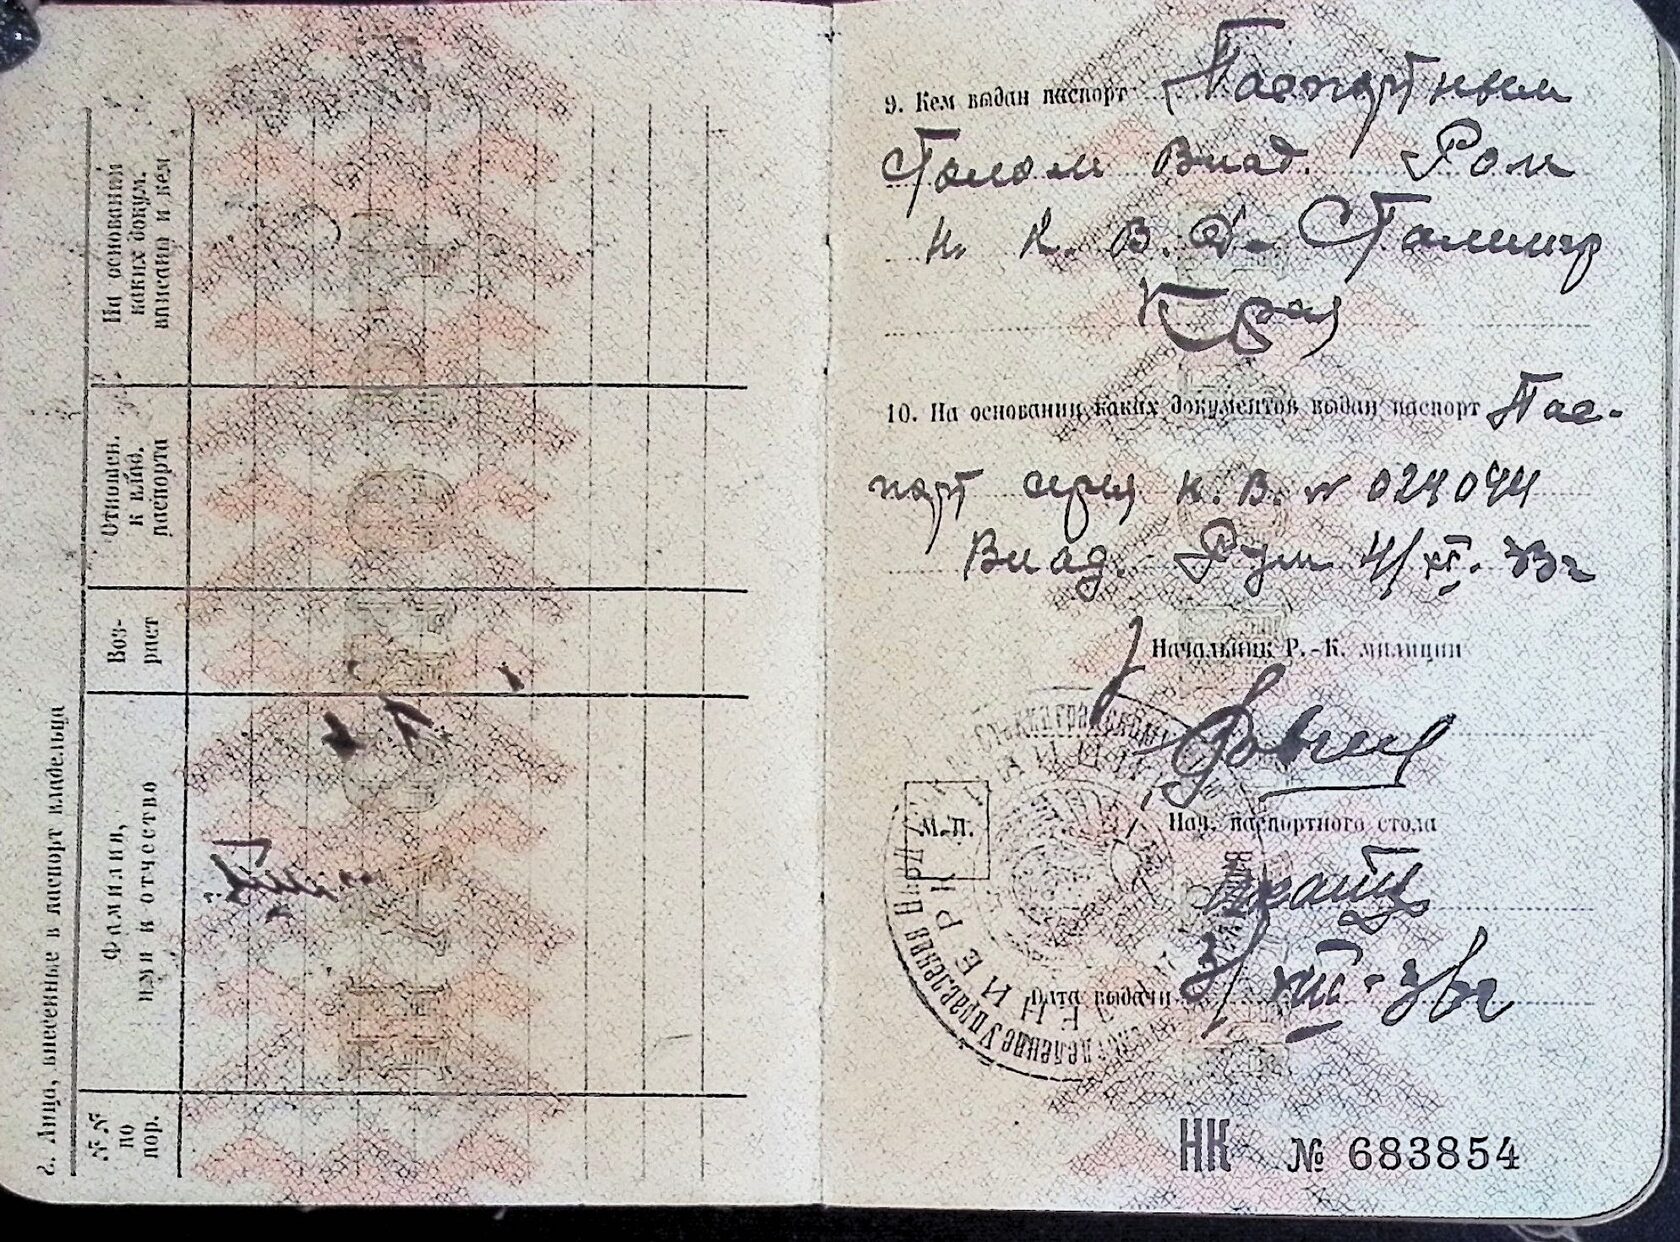 8. Лица, внесенные в паспорт владельца
№№ по пор.
Фамилия, имя и отчество
Воз-раст
Отношен. к влад. паспорта
На основании каких докум. вписаны и кем
9. Кем выдан паспорт Паспортным
Столом Влад. Ром
Н. К. В. Д. Сталингр
Края
10. На основании каких документов выдан паспорт Пас-
порт серия К. В. №
Влад. 4/XI. 33г
Начальник Р.-К. милиции
М. П.
Нач. паспортного стола
Дата выдачи 3/XII-36г
НК № 683854